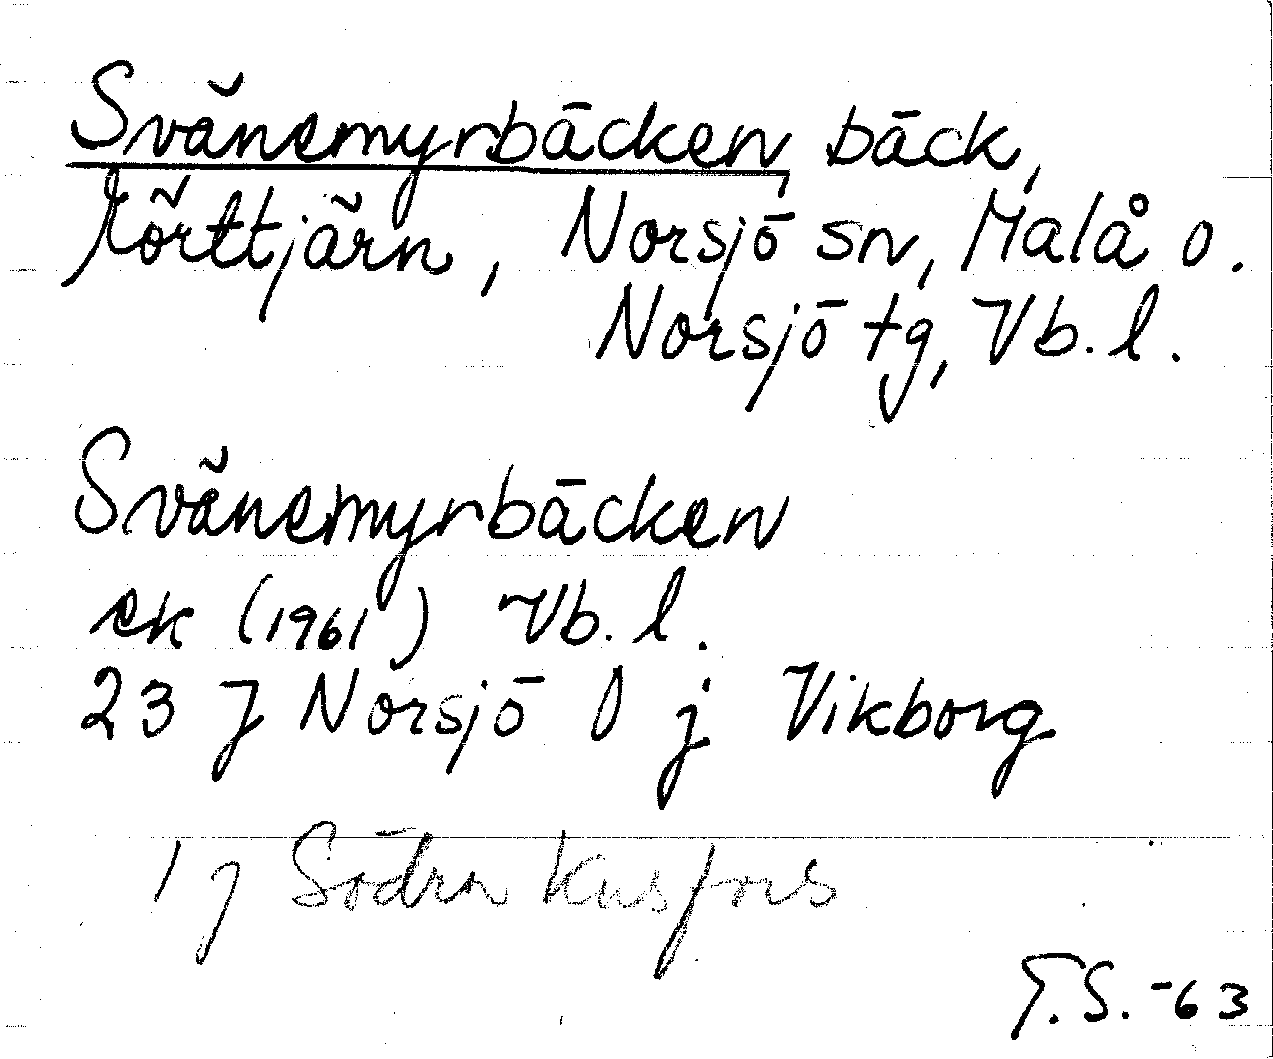 Svänemyrbäcken bäck,
Mörttjärn, Norsjö sn, Malå o.
Norsjö tg, Vb. l.
Svänemyrbäcken
ek (1961) Vb. l.
23 J Norsjö 0 j Vikborg
1 J Södra Kusfors
T.S. -63